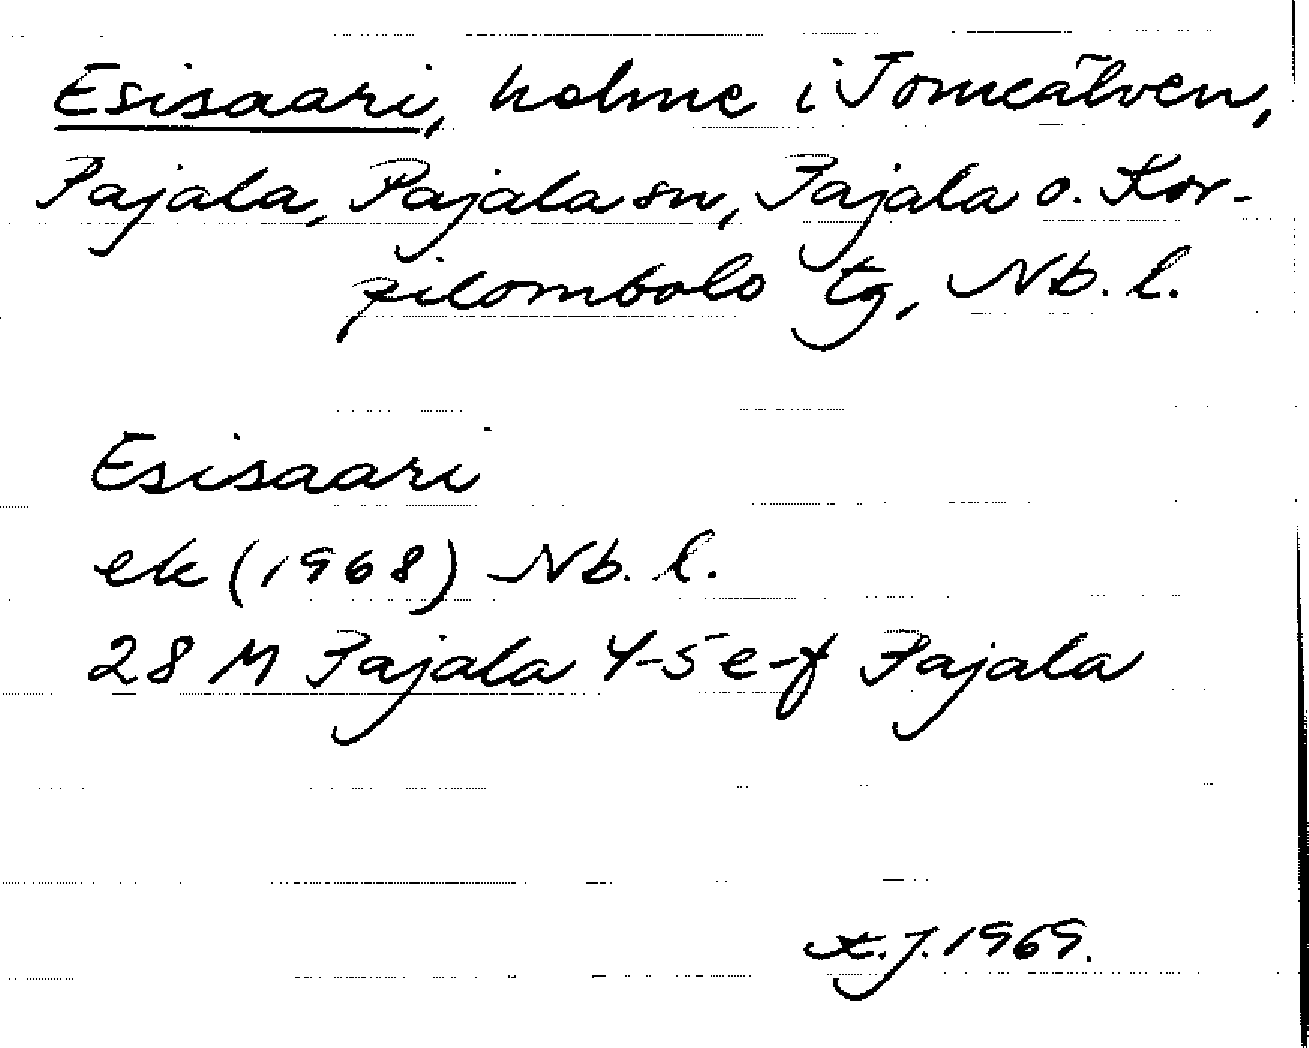 Esisaari, holme i Torneälven,
Pajala, Pajala sn, Pajala o. Kor-
pilombolo tg, Nb. l.
Esisaari
ek (1968) Nb. l.
28 M Pajala 4-5 e-f Pajala
J. 1969.